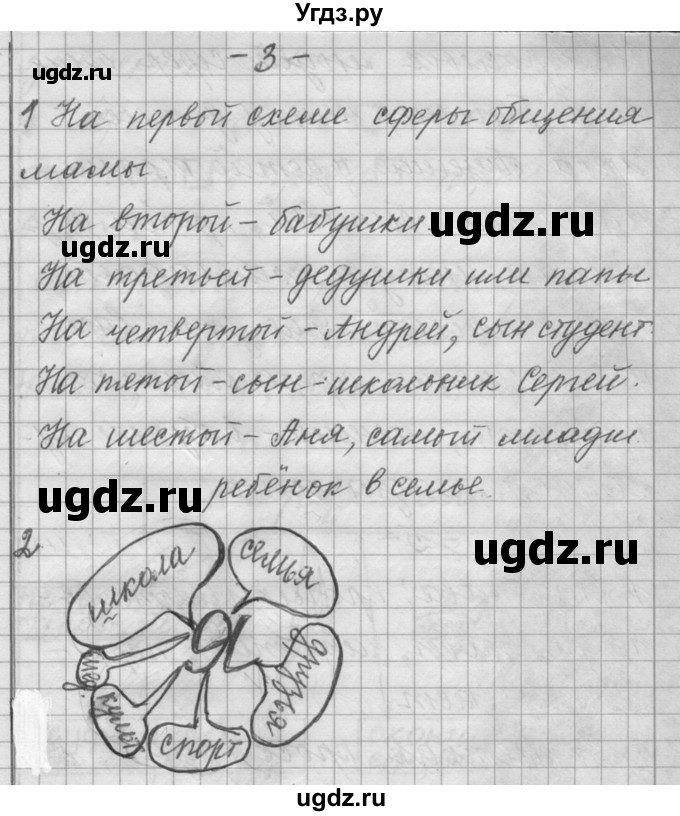 Угдз.ру
- 3 -
ugdz.ru
1 На первой схеме сферы общения
мамы.
На второй - бабушки.
ugdz.ru
ugdz.ru
На третьей - дедушки или папы
На четвертой - Андрей, сын студент.
На пятой - сын - школьник Сергей.
На шестой - Аня, самый младш.
ребёнок в семье.
ugdz.ru
ugdz.ru
2.
школа
семья
Я
друзья
мед.
культ
спорт
ugdz.ru